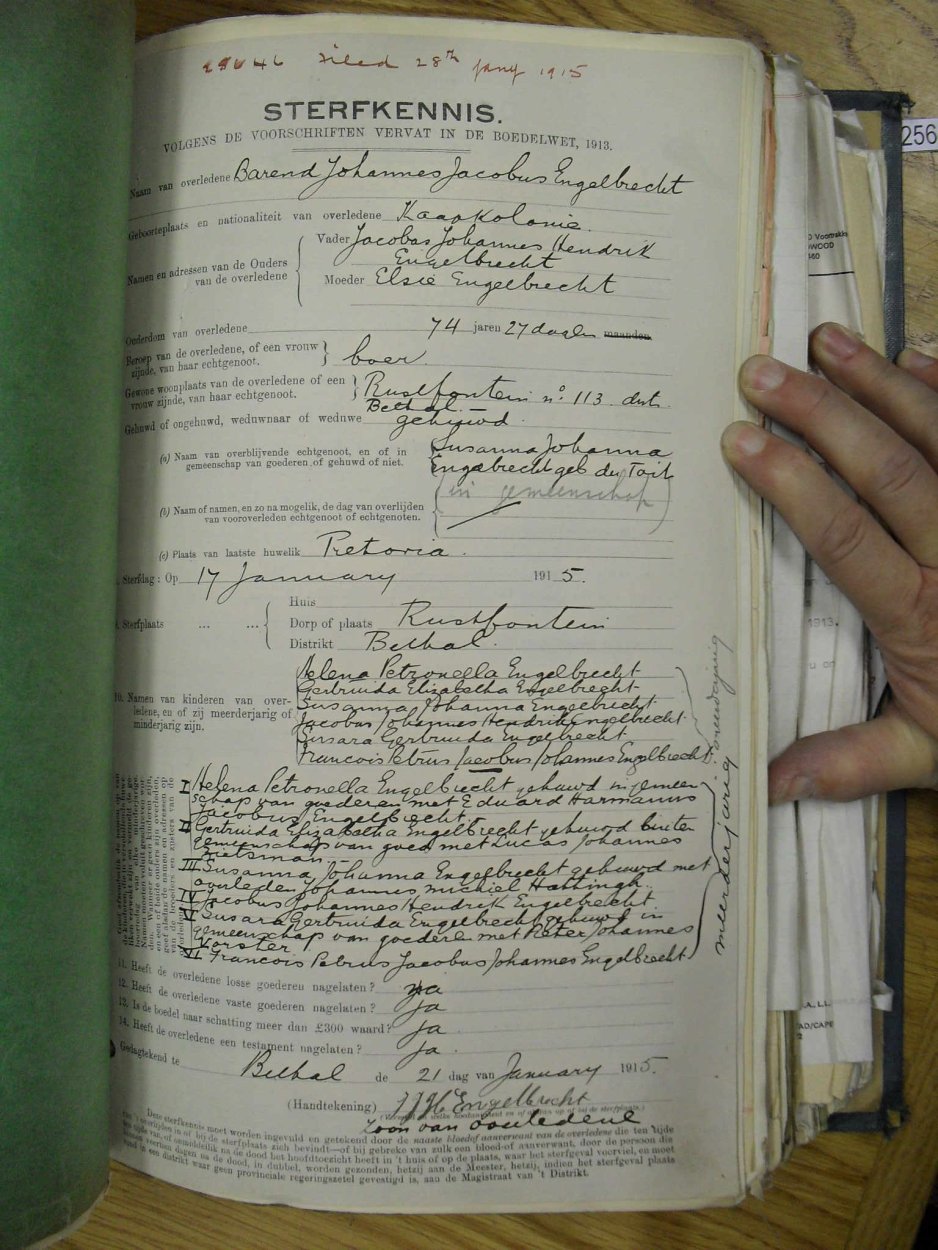 29646 Filed 28th Jany 1915
STERFKENNIS.
VOLGENS DE VOORSCHRIFTEN VERVAT IN DE BOEDELWET, 1913.
Naam van overledene Barend Johannes Jacobus Engelbrecht
Geboorteplaats en nationaliteit van overledene Kaapkolonie.
Namen en adressen van de Ouders van de overledene
Vader Jacobus Johannes Hendrik
Engelbrecht
Moeder Elsie Engelbrecht
Ouderdom van overledene 74 jaren 27 dagen maanden
Beroep van de overledene, of een vrouw
zijnde, van haar echtgenoot. boer
Gewone woonplaats van de overledene of een
vrouw zijnde, van haar echtgenoot. Rustfontein no. 113 dist.
Bethal.
Gehuwd of ongehuwd, weduwnaar of weduwe gehuwd.
(a) Naam van overblijvende echtgenoot, en of in
gemeenschap van goederen of gehuwd of niet.
Susanna Johanna
Engelbrecht geb du Toit
(in gemeenschap)
(b) Naam of namen, en zo na mogelik, de dag van overlijden
van vooroverleden echtgenoot of echtgenoten.
(c) Plaats van laatste huwelik Pretoria.
Sterfdag: Op 17 January 1915.
9. Sterfplaats ... ...
Huis
Dorp of plaats Rustfontein
Distrikt Bethal.
10. Namen van kinderen van over-
ledene, en of zij meerderjarig of
minderjarig zijn.
Helena Petronella Engelbrecht
Gertruida Elizabetha Engelbrecht
Susanna Johanna Engelbrecht
Jacobus Johannes Hendrik Engelbrecht
Susara Gertruida Engelbrecht
Francois Petrus Jacobus Johannes Engelbrecht.
I Helena Petronella Engelbrecht gehuwd in gemeen
schap van goederen met Eduard Harmanus
Jacobus Engelbrecht.
II Gertruida Elizabetha Engelbrecht gehuwd buiten
gemeenschap van goed met Lucas Johannes
Pietsman.
III Susanna Johanna Engelbrecht gehuwd met
overleden Johannes Michiel Hattingh.
IV Jacobus Johannes Hendrik Engelbrecht.
V Susara Gertruida Engelbrecht gehuwd in
gemeenschap van goederen met Pieter Johannes
Vorster.
VI Francois Petrus Jacobus Johannes Engelbrecht
meerderjarig
11. Heeft de overledene losse goederen nagelaten? ja
12. Heeft de overledene vaste goederen nagelaten? ja
13. Is de boedel naar schatting meer dan £300 waard? ja.
14. Heeft de overledene een testament nagelaten? ja.
Gedagtekend te Bethal de 21 dag van January 1915.
(Handtekening) JJH Engelbrecht
zoon van overledene
Deze sterfkennis moet worden ingevuld en getekend door de naaste bloedaanverwant van de overledene die ten tijde
van 't overlijden in of bij de sterfplaats zich bevindt—of bij gebreke van zulk een bloedaanverwant, door de persoon die
ten tijde van, of onmiddellik na de dood het hoofdtoezicht heeft in 't huis of op de plaats, waar het sterfgeval voorviel, en moet
binnen veertien dagen na de dood, in dubbel, worden gezonden, hetzij aan de Meester, hetzij, indien het sterfgeval plaats
vond in een distrikt waar geen provinciale regeringszetel gevestigd is, aan de Magistraat van 't Distrikt.
256